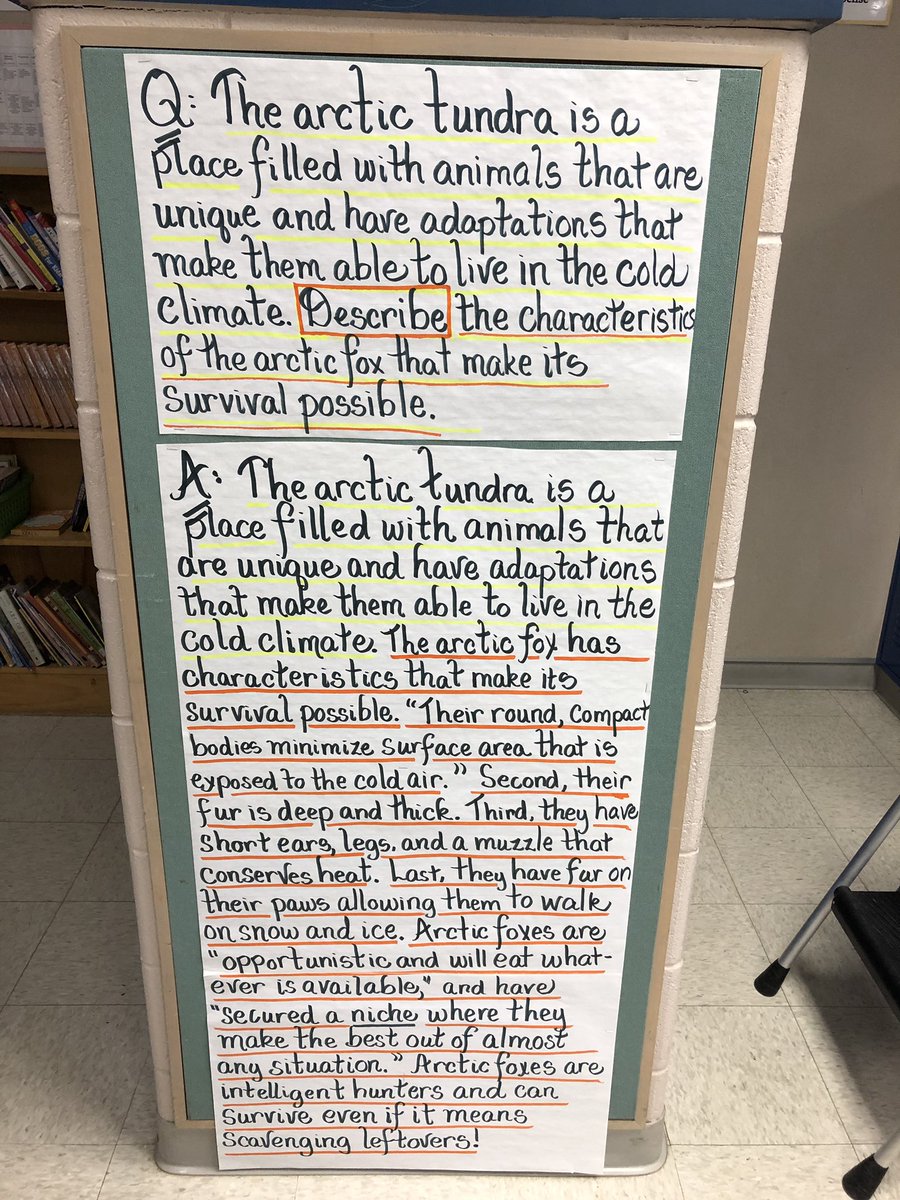 Q: The arctic tundra is a
place filled with animals that are
unique and have adaptations that
make them able to live in the cold
climate. Describe the characteristics
of the arctic fox that make its
survival possible.
A: The arctic tundra is a
place filled with animals that
are unique and have adaptations
that make them able to live in the
cold climate. The arctic fox has
characteristics that make its
survival possible. "Their round, compact
bodies minimize surface area that is
exposed to the cold air." Second, their
fur is deep and thick. Third, they have
short ears, legs, and a muzzle that
conserves heat. Last, they have fur on
their paws allowing them to walk
on snow and ice. Arctic foxes are
"opportunistic and will eat what-
ever is available," and have
"secured a niche where they
make the best out of almost
any situation." Arctic foxes are
intelligent hunters and can
survive even if it means
scavenging leftovers!